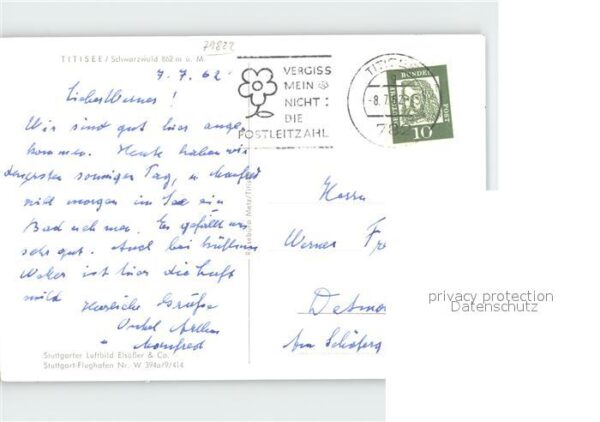 79822
TITISEE / Schwarzwald 862 m ü. M.
7. 7. 62
Lieber Werner!
Wir sind gut hier ange-
kommen. Heute haben wir
den ersten sonnigen Tag, u. Manfred
will morgen im See ein
Bad nehmen. Es gefällt uns
sehr gut. Auch bei trüblem
Wetter ist hier die Luft
mild
Herzliche Grüße
Onkel Arthur
" Manfred
Stuttgarter Luftbild Elsäßer & Co.
Stuttgart-Flughafen Nr. W 394a/9/414
VERGISS
MEIN
NICHT:
DIE
POSTLEITZAHL
TITISEE
-8.7.62
782
10
Herrn
Werner
Detmo
Am
privacy protection
Datenschutz